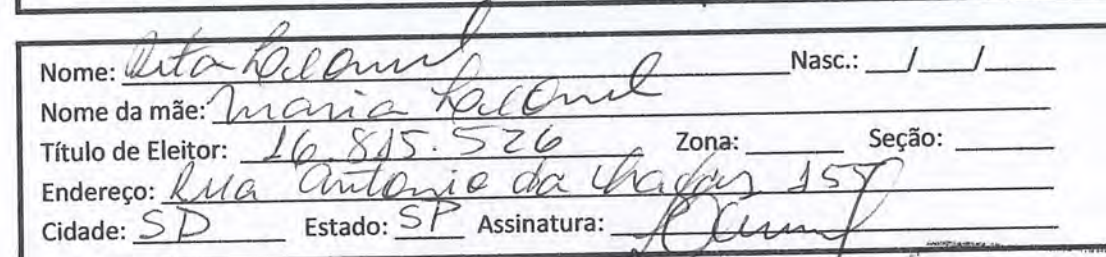 Nome: Rita Nasc.: / /
Nome da mãe: Maria
Título de Eleitor: 16.815.526 Zona: Seção:
Endereço: Rua Antonio da Chagas 157
Cidade: SP Estado: SP Assinatura: